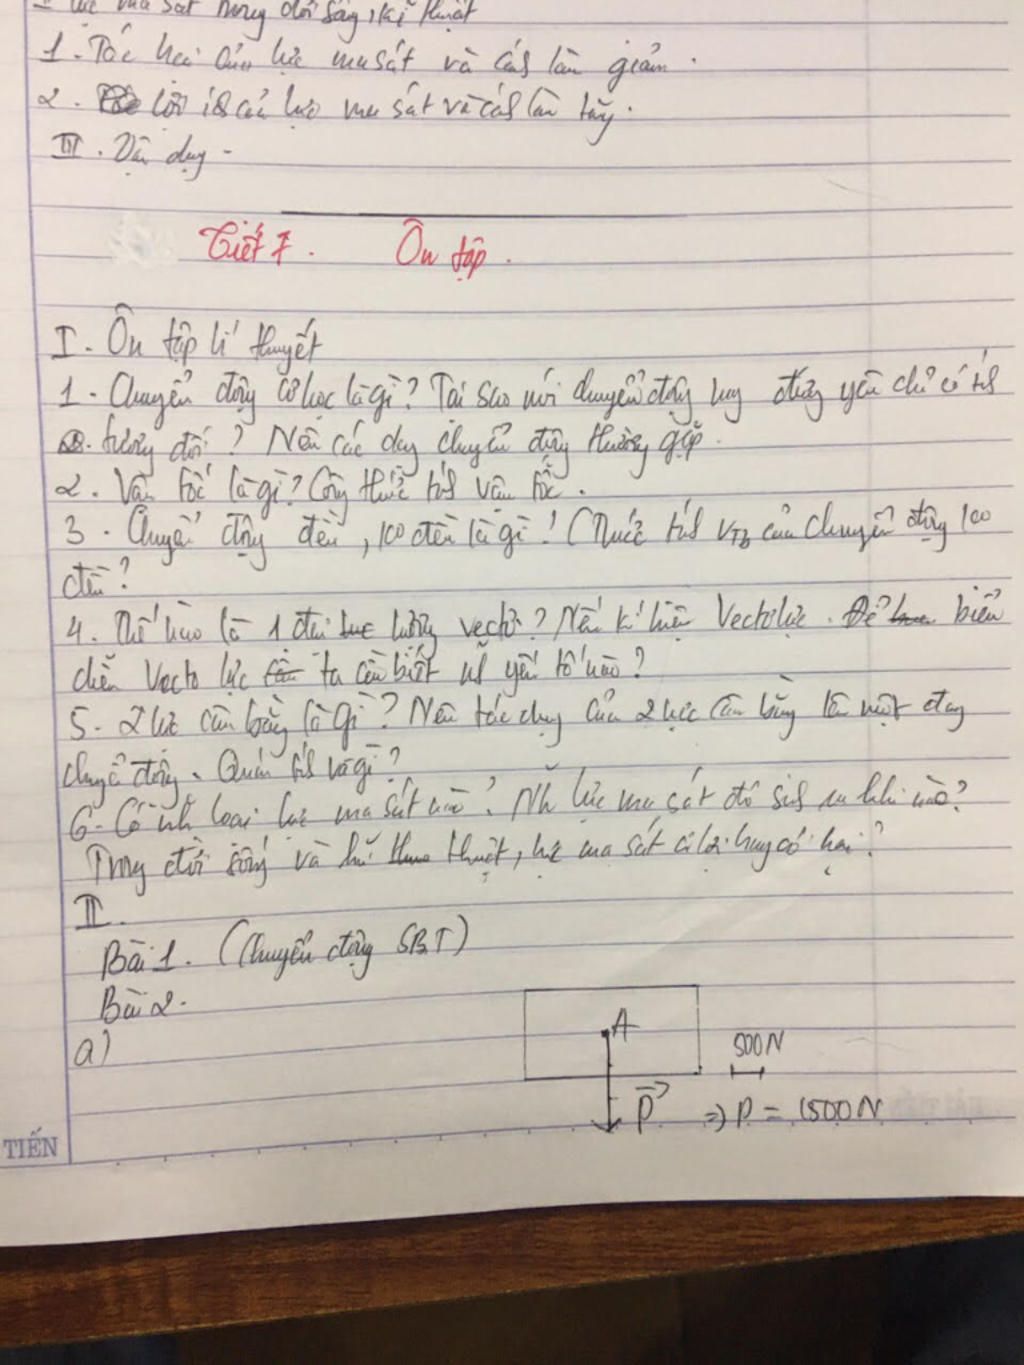 lực ma sát trong đời sống, kĩ thuật
1. Tác hại của lực ma sát và cách làm giảm.
2. lợi ích của lực ma sát và cách làm tăng.
III. Vận dụng -
Tiết 7. Ôn tập.
I. Ôn tập lí thuyết
1. Chuyển động cơ học là gì? Tại sao nói chuyển động hay đứng yên chỉ có tính
tương đối? Nêu các dạng chuyển động thường gặp.
2. Vận tốc là gì? Công thức tính vận tốc.
3. Chuyển động đều, ko đều là gì? Thức tính VTb của chuyển động ko
đều?
4. Thế nào là 1 đại lượng vectơ? Nêu kí hiệu Vectơ lực. Để biểu
diễn Vecto lực ta cần biết nh yếu tố nào?
5. 2 lực cân bằng là gì? Nêu tác dụng của 2 lực cân bằng lên một đang
chuyể động. Quán tính là gì?
6. Có nh loại lực ma sát nào? Nh lực ma sát đó sinh ra khi nào?
Trong đời sống và kĩ thuật, lực ma sát có lợi hay có hại?
II.
Bài 1. (Chuyển động SBT)
Bài 2.
a)
A
500N
P ⇒ P = 1500N
TIẾN